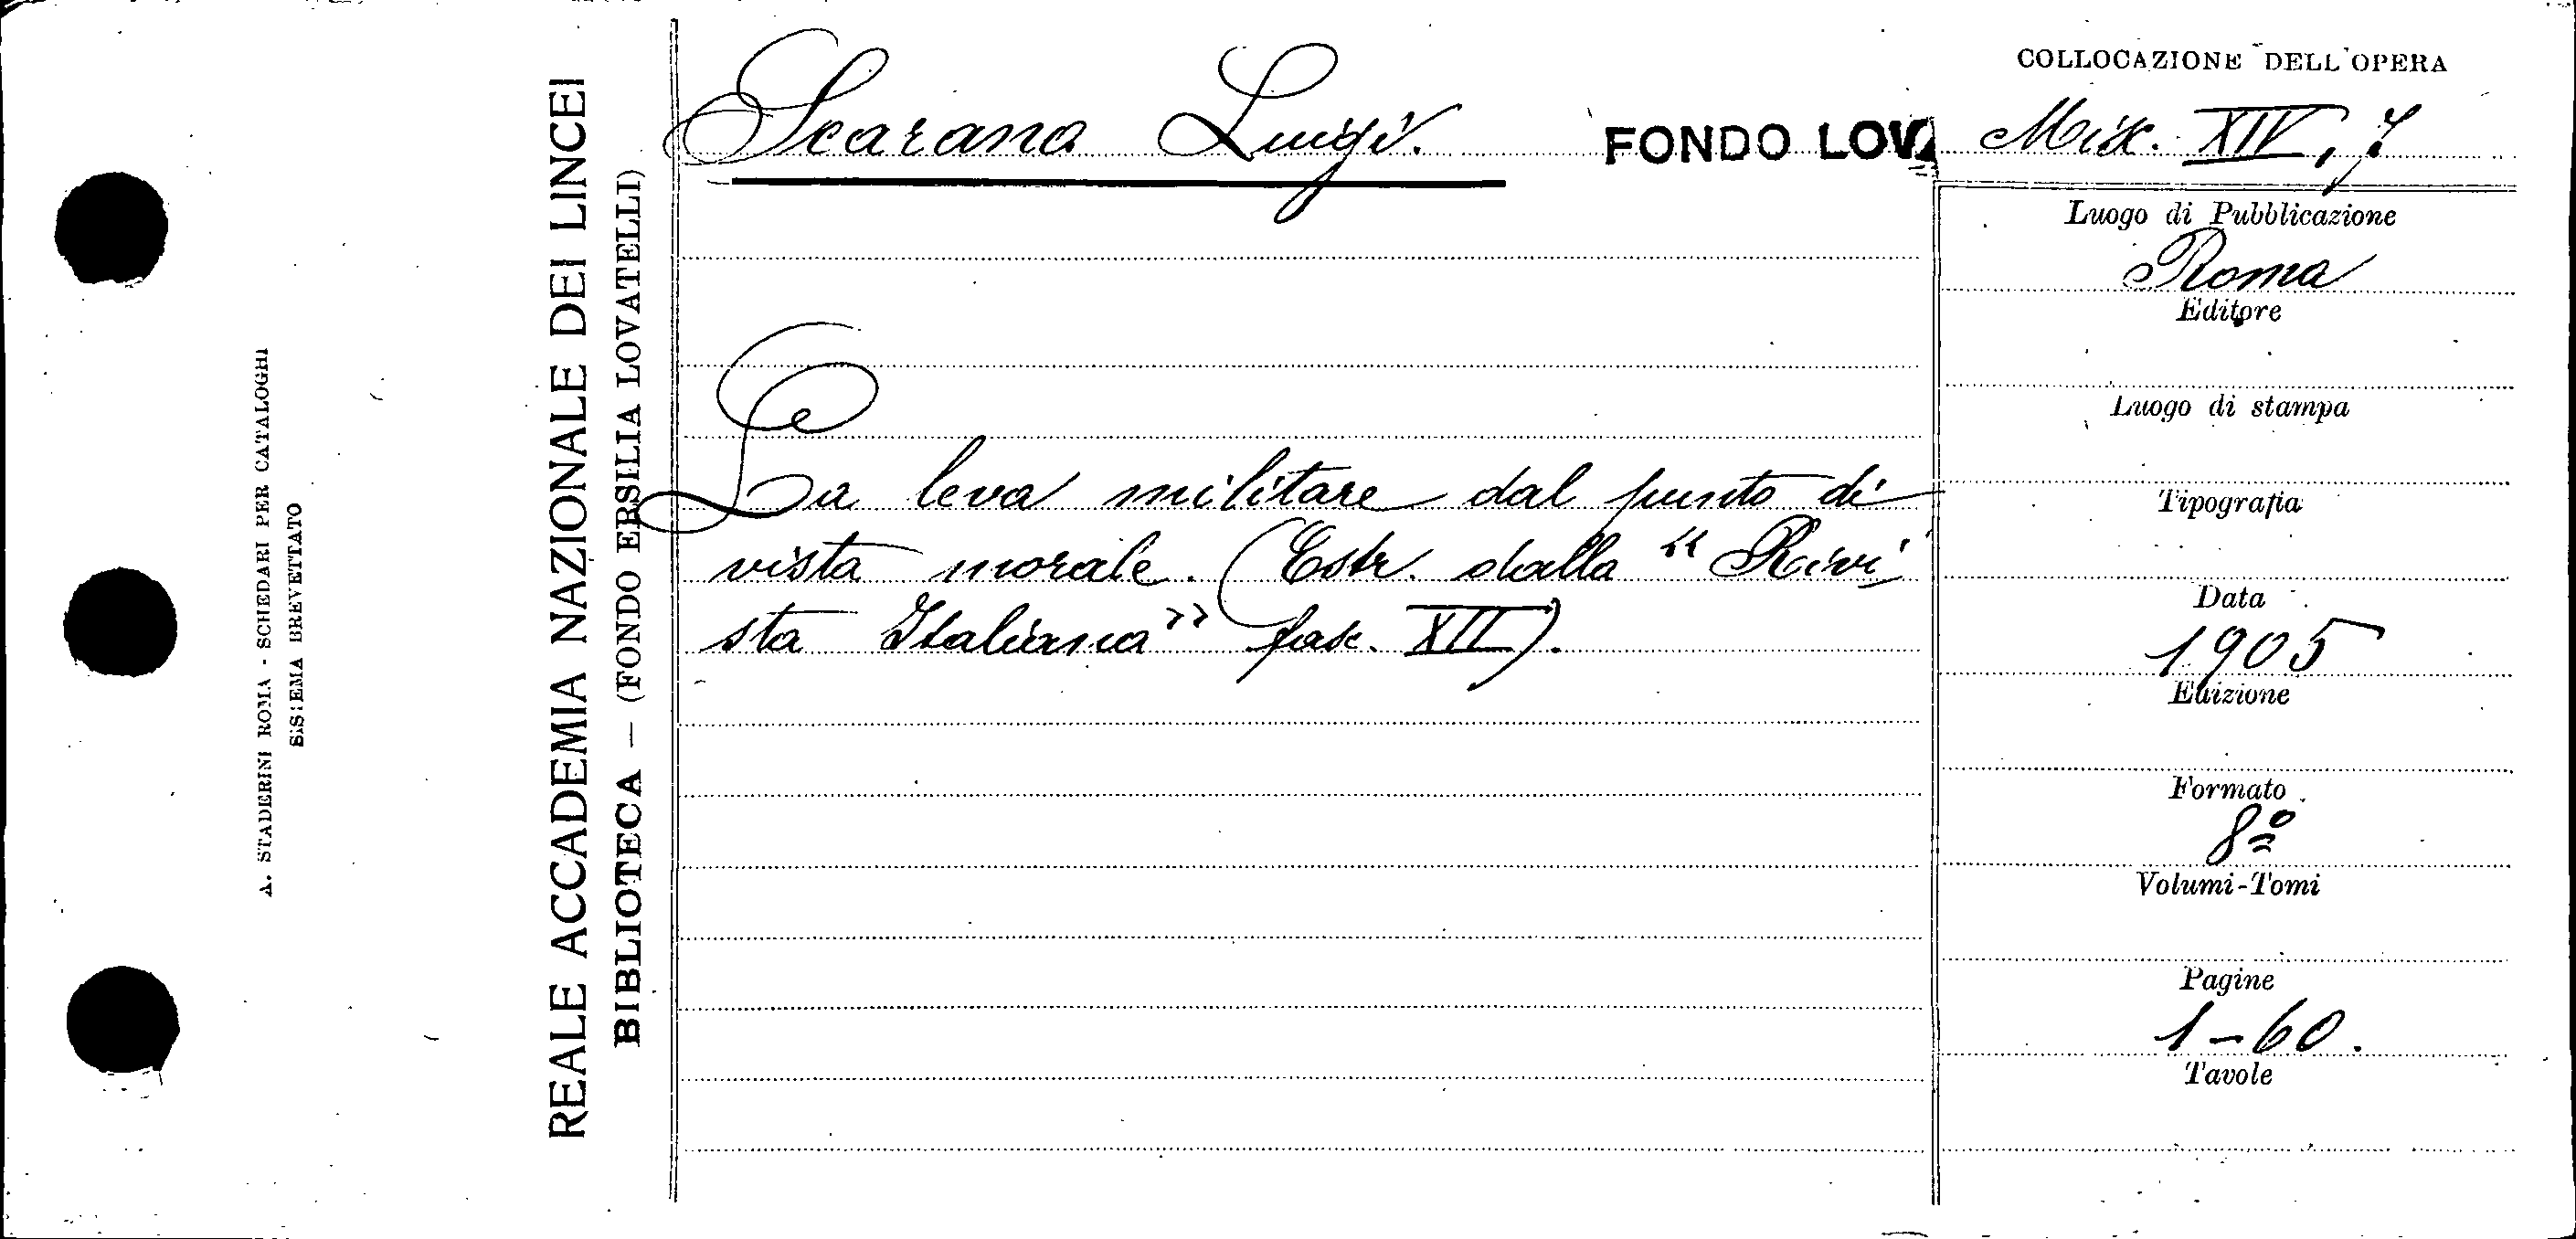 A. STADERINI ROMA - SCHEDARI PER CATALOGHI
SISTEMA BREVETTATO
REALE ACCADEMIA NAZIONALE DEI LINCEI
BIBLIOTECA — (FONDO ERSILIA LOVATELLI)
Scarano Luigi.
FONDO LOV.
La leva militare dal punto di
vista morale. (Estr. dalla "Rivi
sta Italiana" fasc. XII).
COLLOCAZIONE DELL'OPERA
Misc. XIV, 7
Luogo di Pubblicazione
Roma
Editore
Luogo di stampa
Tipografia
Data
1905
Edizione
Formato
8º
Volumi-Tomi
Pagine
1-60.
Tavole